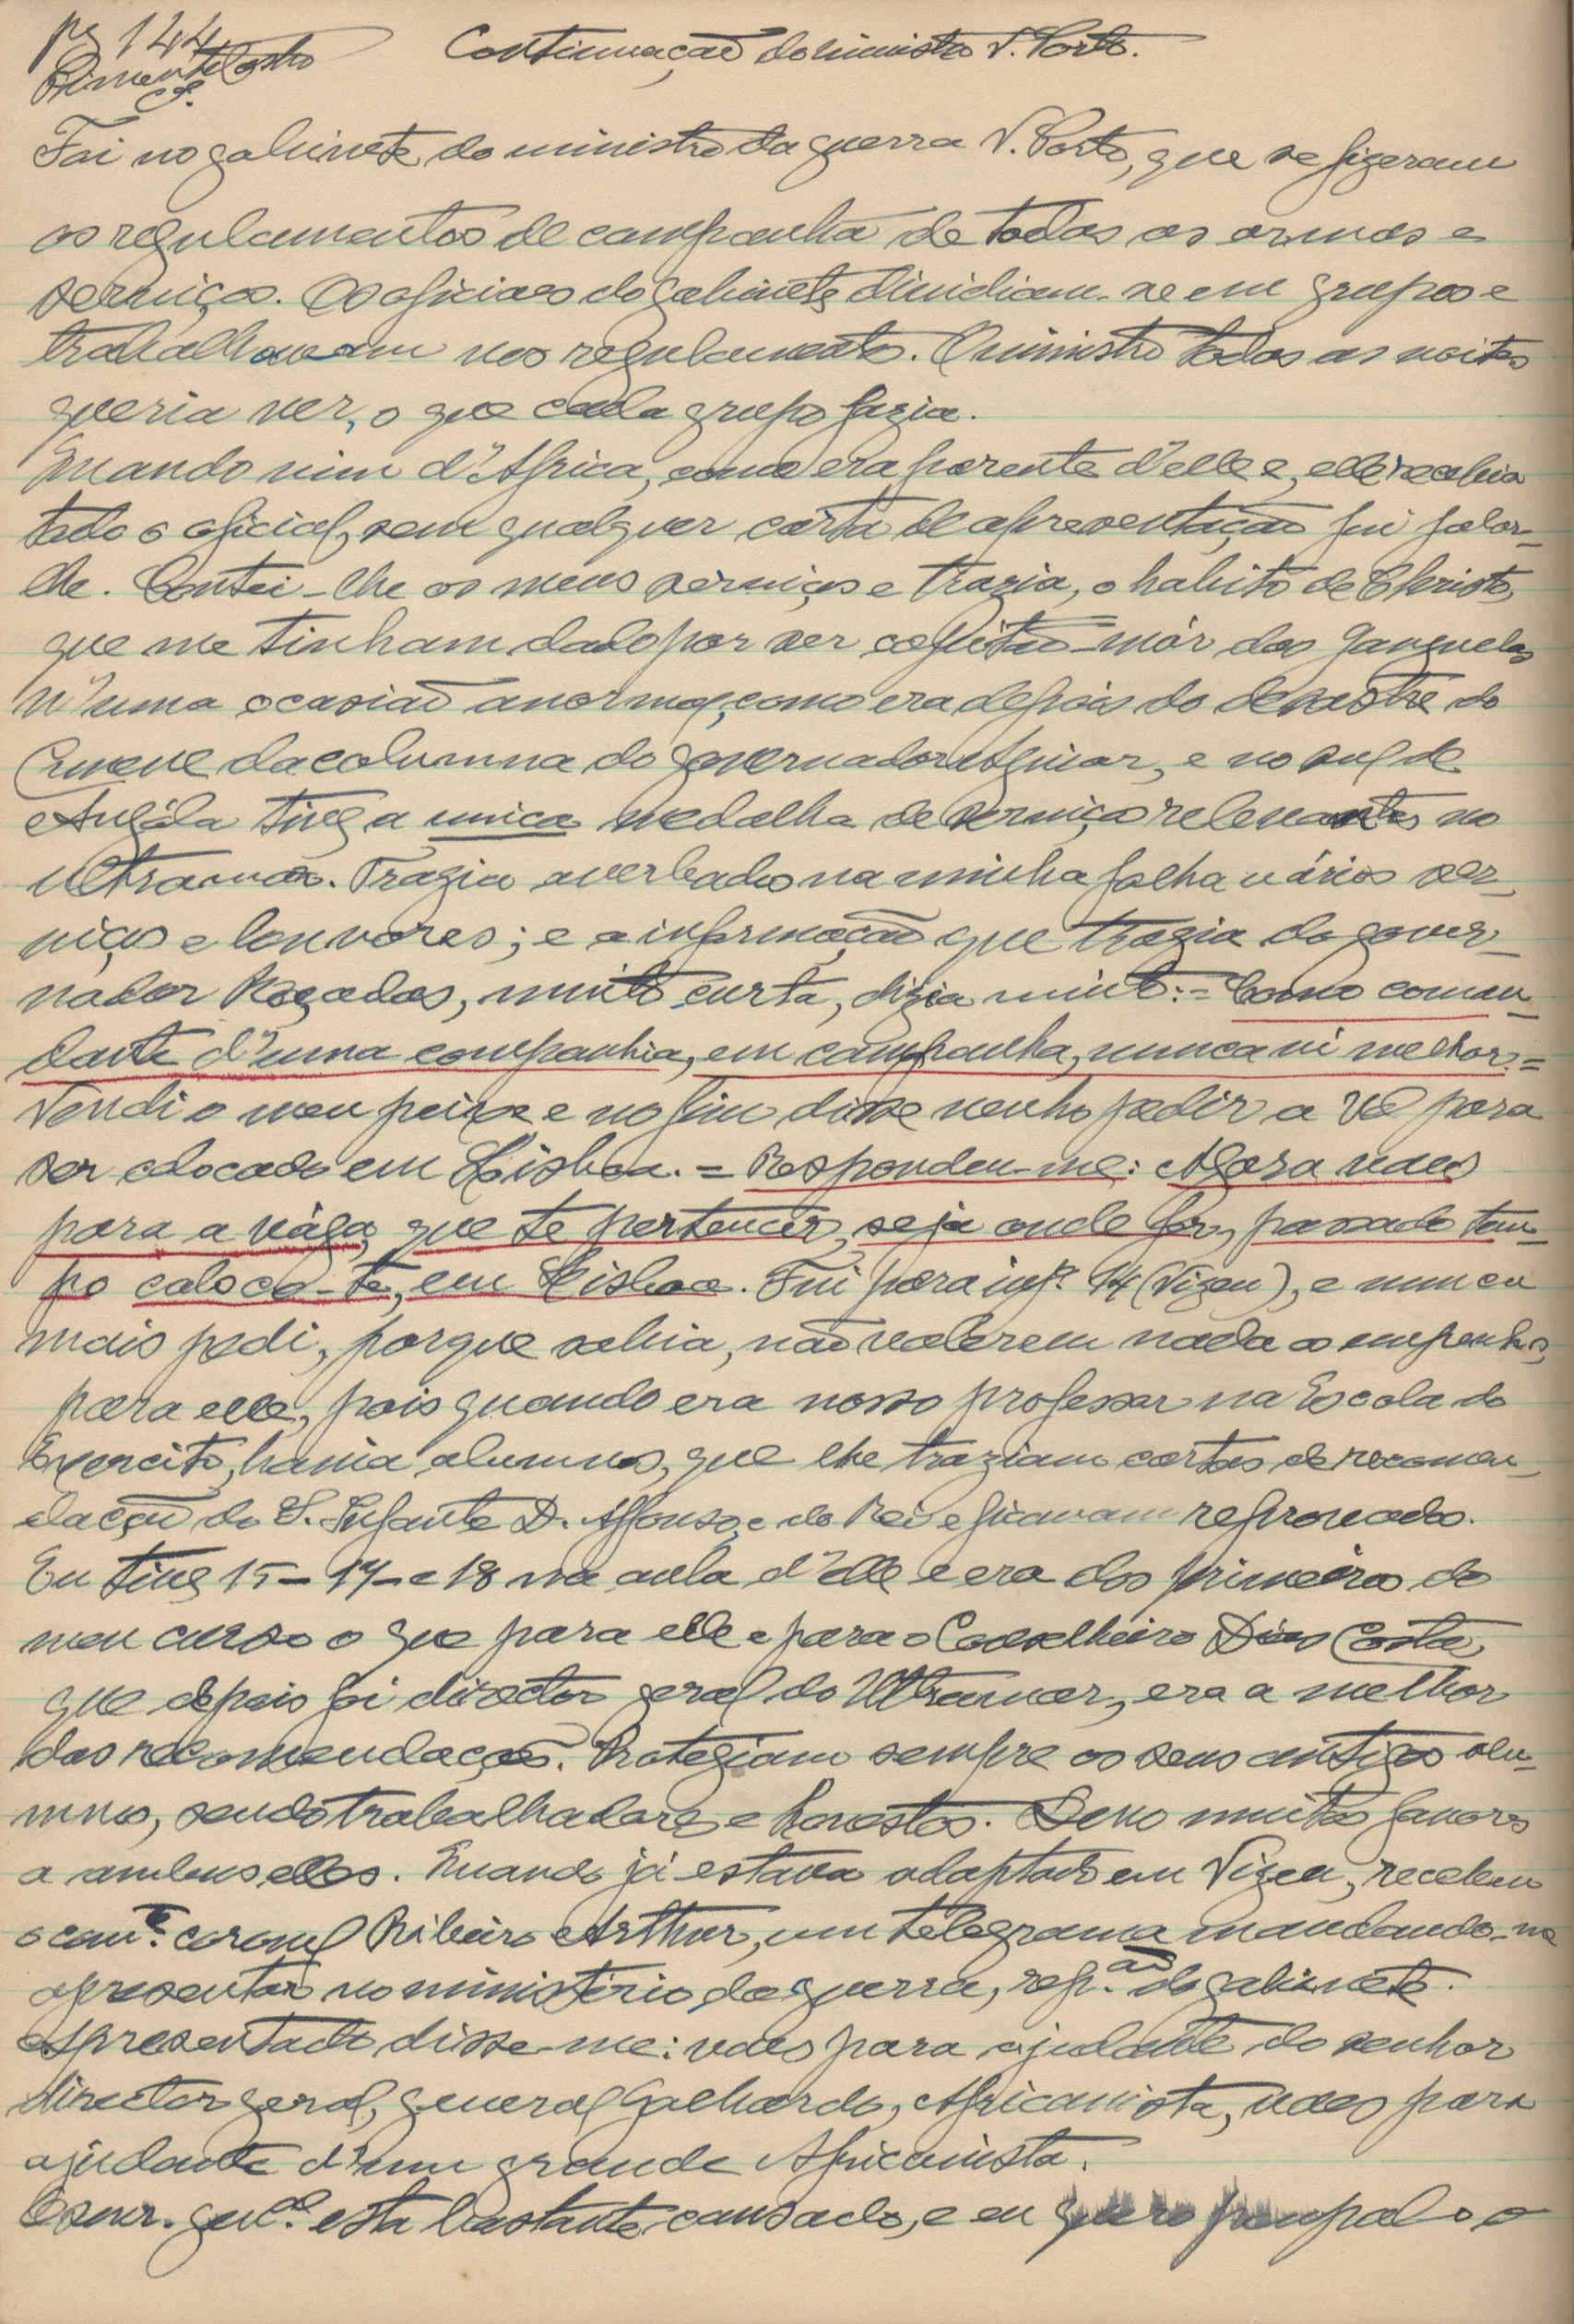 pg 144
Continuação do ministro V. Porto.
Pimentel Castro
Foi no gabinete do ministro da guerra V. Porto, que se fizeram
os regulamentos de campanha de todas as armas e
serviços. Os oficiaes do gabinete dividiam-se em grupos e
trabalhavam nos regulamentos. O ministro todas as noites
queria ver, o que cada grupo fazia.
Quando vim d'Africa, como era parente d'elle e, elle recebia
todo o oficial, sem qualquer carta de apresentação fui falar-
lhe. Contei-lhe os meus serviços e trazia, o habito de Christo,
que me tinham dado por ser capitão-mór dos Ganguelas
n'uma ocasião anormal, como era depois do desastre do
Cunene da columna do governador Aguiar, e no sul de
Angóla tive a unica medalha de serviços relevantes no
ultramar. Trazia averbados na minha folha vários ser-
viços e louvores; e a informação que trazia do gover-
nador Roçadas, muito curta, dizia muito: = Como coman-
dante d'uma companhia, em campanha, nunca vi melhor. =
Vendi o meu peixe e no fim disse venho pedir a VE para
ser colocado em Lisboa. = Respondeu-me: Agora vaes
para a vága, que te pertencer, seja onde for, passado tem-
po caloco-te, em Lisboa. Fui para infª. 14 (Vizeu), e nunca
mais pedi, porque sabia, não valerem nada os empenhos,
para elle, pois quando era nosso professor na Escola do
Exercito, havia alumnos, que lhe traziam cartas de recomen-
dação do S. Infante D. Affonso, e do Rei e ficavam reprovados.
Eu tive 15-17-e 18 na aula d'elle e era dos primeiros do
meu curso o que para elle e para o Conselheiro Dias Costa,
que depois foi director geral do Ultramar, era a melhor
das recomendações. Protegiam sempre os seus antigos alu-
mnos, sendo trabalhadores e honestos. Devo muitos favores
a ambos elles. Quando já estava adaptado em Vizeu, recebeu
o comte. coronel Ribeiro Arthur, um telegrama mandando-me
apresentar no ministério da guerra, rep.ão do gabinete.
Apresentado disse-me: vaes para ajudante do senhor
director geral, general Galhardo, Africanista, vaes para
ajudante d'um grande Africanista.
O snr. genal. esta bastante cansado, e eu quero poupal-o o